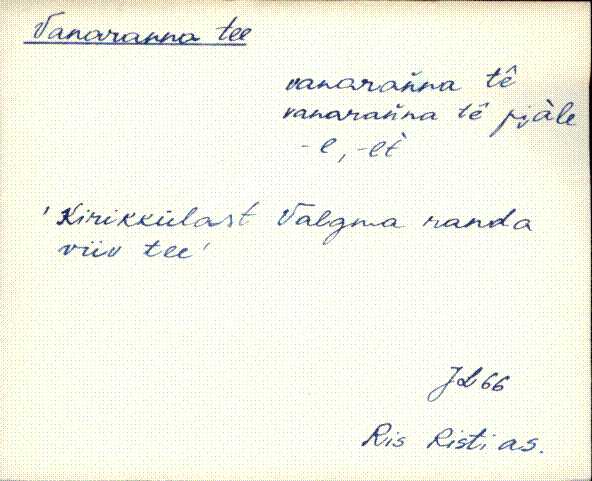 Vanaranna tee
vanarañna tê
vanarañna tê pi̯àle
-e, -et̀
'Kirikkülast Valgma randa
viiv tee'
JL 66
Ris Risti as.